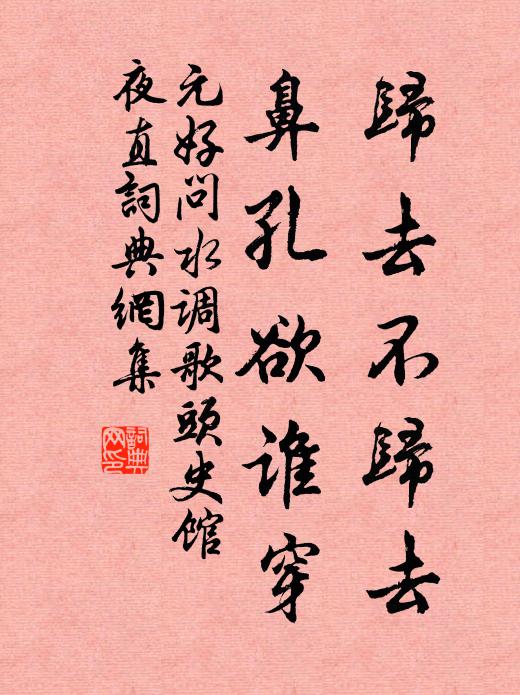 歸去不歸去
鼻孔欲誰穿
元好問水调歌頭史館
夜直詞典網集
詞典
网印